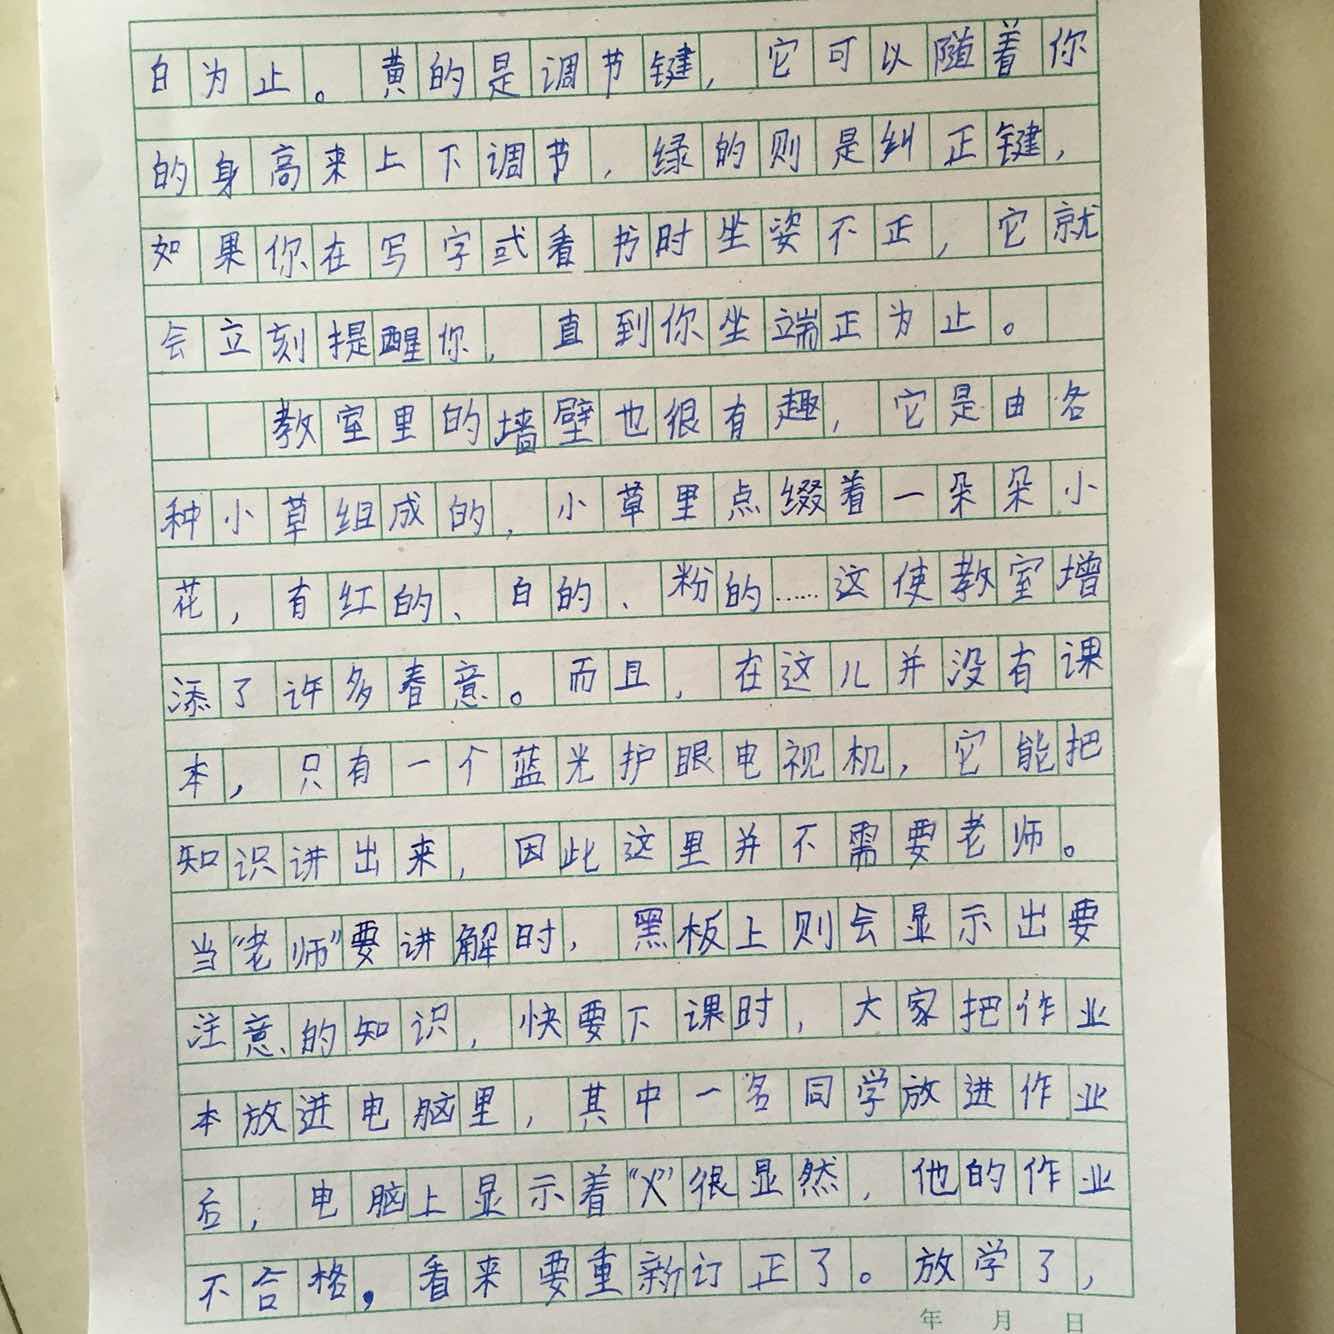 白为止。黄的是调节键，它可以随着你
的身高来上下调节，绿的则是纠正键，
如果你在写字或看书时坐姿不正，它就
会立刻提醒你，直到你坐端正为止。
教室里的墙壁也很有趣，它是由各
种小草组成的，小草里点缀着一朵朵小
花，有红的、白的、粉的……这使教室增
添了许多春意。而且，在这儿并没有课
本，只有一个蓝光护眼电视机，它能把
知识讲出来，因此这里并不需要老师。
当“老师”要讲解时，黑板上则会显示出要
注意的知识，快要下课时，大家把作业
本放进电脑里，其中一名同学放进作业
后，电脑上显示着“X”很显然，他的作业
不合格，看来要重新订正了。放学了，
年 月 日